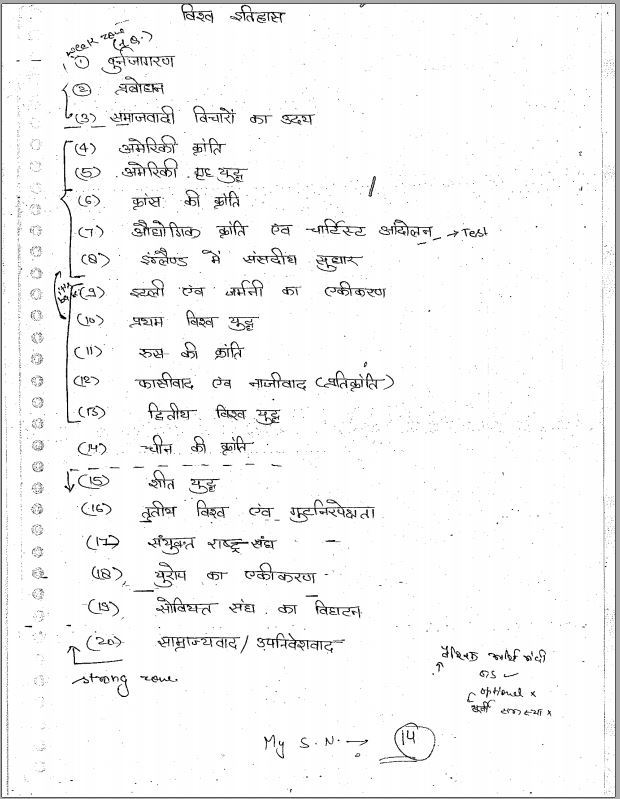 विश्व इतिहास
weak zone (1 Q.)
(1) पुर्नजागरण
(2) प्रबोधन
(3) समाजवादी विचारों का उदय
(4) अमेरिकी क्रांति
(5) अमेरिकी गृह युद्ध
(6) फ्रांस की क्रांति
(7) औद्योगिक क्रांति एंव चार्टिस्ट आंदोलन → Test
(8) इंग्लैण्ड में संसदीय सुधार
(9) इटली एंव जर्मनी का एकीकरण
(10) प्रथम विश्व युद्ध
(11) रुस की क्रांति
(12) फासीवाद एंव नाजीवाद (प्रतिक्रांति)
(13) द्वितीय विश्व युद्ध
(14) चीन की क्रांति
(15) शीत युद्ध
(16) तृतीय विश्व एंव गुटनिरपेक्षता
(17) संयुक्त राष्ट्र संघ
(18) युरोप का एकीकरण
(19) सोवियत संघ का विघटन
(20) साम्राज्यवाद / उपनिवेशवाद
strong zone
वैश्विक आर्थिक मंदी
GS ✓
optional x
समस्या x
My S.N. → 14